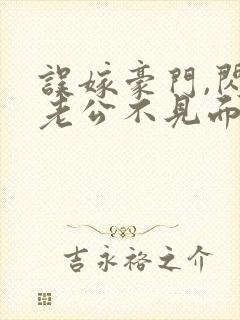 誤嫁豪門,閃
老公不見而
吉永裕之介